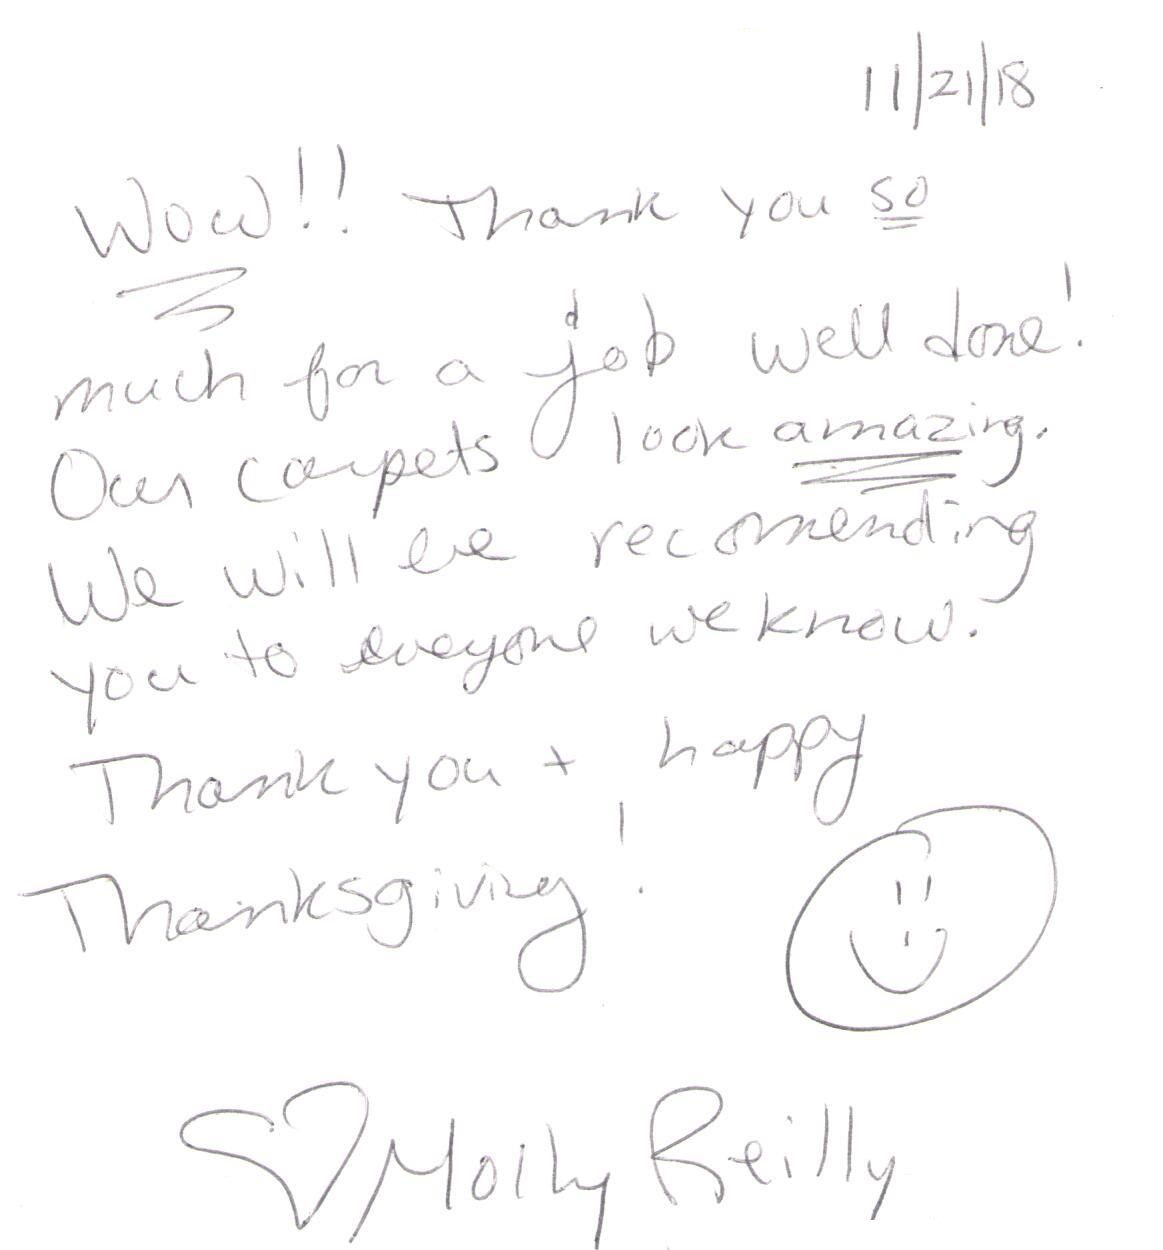 11/21/18
Wow!! Thank you so
much for a job well done!
Our carpets look amazing.
We will be recomending
you to eveyone we know.
Thank you + happy
Thanksgiving!
Molly Reilly